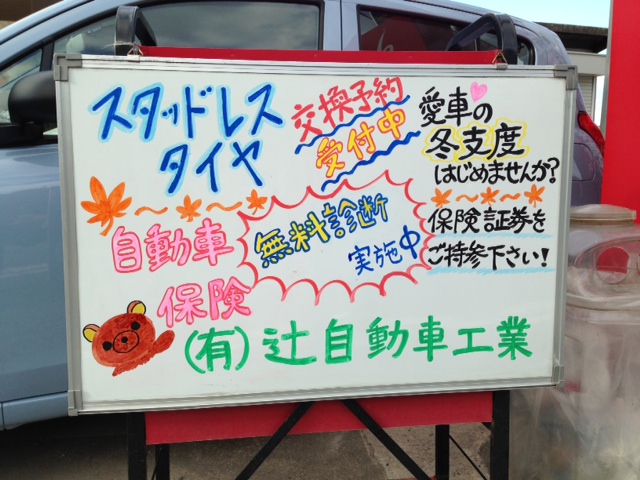 スタッドレス
タイヤ
交換予約
受付中
愛車の
冬支度
はじめませんか?
自動車
保険
無料診断
実施中
保険証券を
ご持参下さい!
(有)辻自動車工業